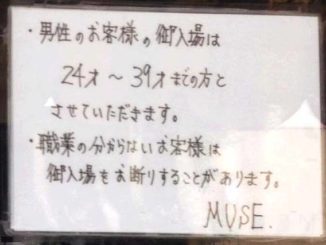 ・男性のお客様の御入場は
24才～39才までの方と
させていただきます。
・職業の分からないお客様は
御入場をお断りすることがあります。
MUSE.